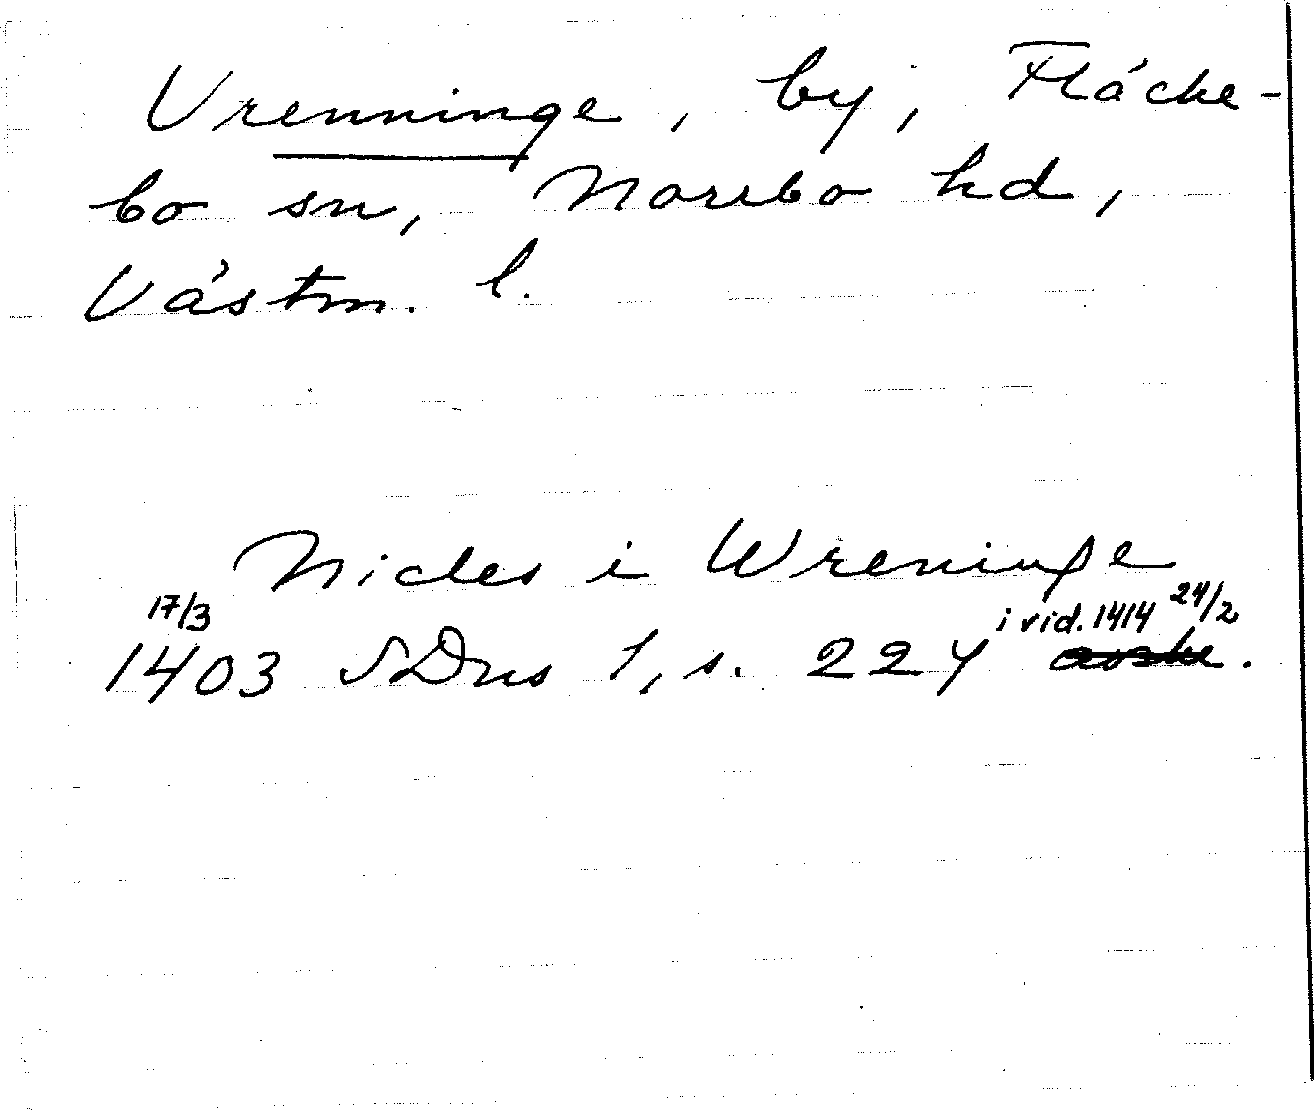 Vrenninge, by, Fläcke-
bo sn, Norrbo hd,
Västm. l.
Nicles i Wreninge
17/3 i vid. 1414 24/2
1403 SDns 1, s. 227 avskr.